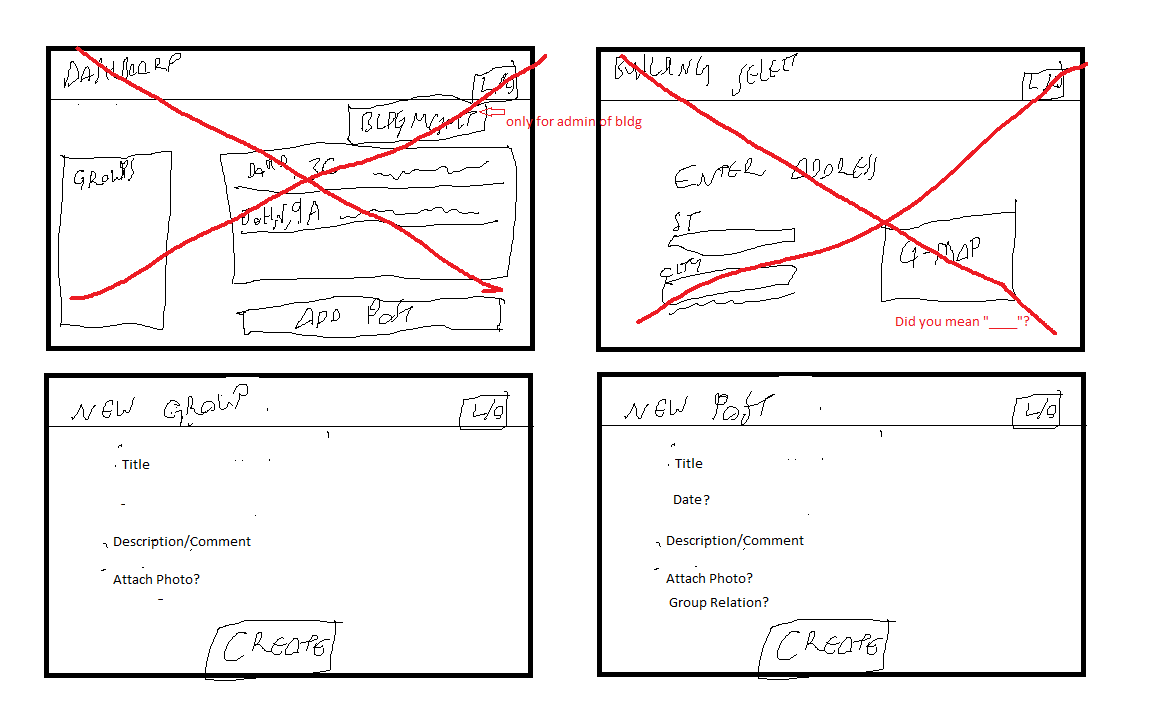 DASHBOARD
L/O
BLDG MGMT
only for admin of bldg
GROUPS
3G
JOHN, 9A
ADD POST
BUILDING SELECT
L/O
ENTER ADDRESS
ST
CITY
G-MAP
Did you mean "____"?
NEW GROUP
L/O
Title
Description/Comment
Attach Photo?
CREATE
NEW POST
L/O
Title
Date?
Description/Comment
Attach Photo?
Group Relation?
CREATE